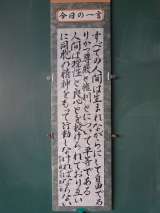 今日の一言
すべての人間は生まれながらにして自由であ
りかつ尊厳と権利とについて平等である
人間は理性と良心とを授けられており互い
に同胞の精神をもって行動しなければならない